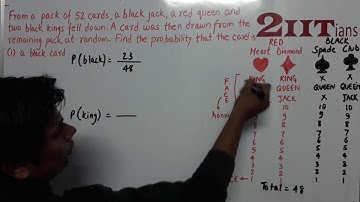 From a pack of 52 cards, a black jack, a red queen and
two black kings fell down. A card was then drawn from the
remaining pack at random. Find the probability that the card is
(i) a black card
2IITians
P(black) = 23
48
P(king) =
RED BLACK
Heart Diamond Spade Club
KING KING X X
QUEEN QUEEN QUEEN
JACK X
10 10 10
9 9 9
8 8 8 8
7 7 7 7
6 6 6 6
5 5 5 5
4 4 4 4
3 3 3 3
2 2 2 2
1 1 1 1
Total = 48
F
A
C
E